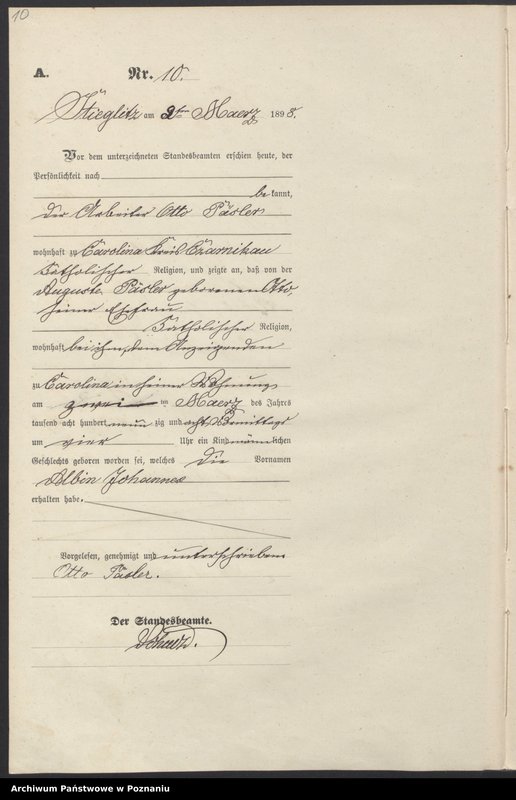 10
A. Nr. 10.
Stieglitz am 2ten Maerz 1898.
Vor dem unterzeichneten Standesbeamten erschien heute, der
Persönlichkeit nach
be kannt,
der Arbeiter Otto Päsler
wohnhaft zu Carolina Kreis Czarnikau
katholischer Religion, und zeigte an, daß von der
Auguste Päsler geborenen Otto,
seiner Ehefrau
katholischer Religion,
wohnhaft bei ihm, dem Anzeigenden
zu Carolina in seiner Wohnung
am zwei ten Maerz des Jahres
tausend acht hundert neun zig und acht Vormittags
um vier Uhr ein Kind männlichen
Geschlechts geboren worden sei, welches die Vornamen
Albin Johannes
erhalten habe.
Vorgelesen, genehmigt und unterschrieben
Otto Päsler.
Der Standesbeamte.
Archiwum Państwowe w Poznaniu